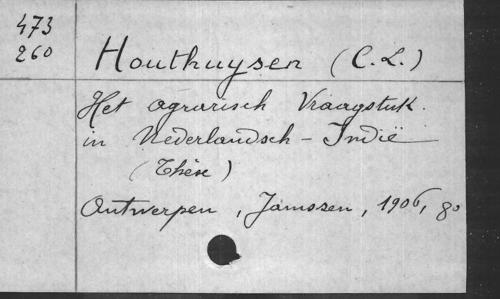 473
260
Houthuysen (C.L.)
Het agrarisch Vraagstuk.
in Nederlandsch-Indië
(Thèse)
Antwerpen, Janssen, 1906, 8o